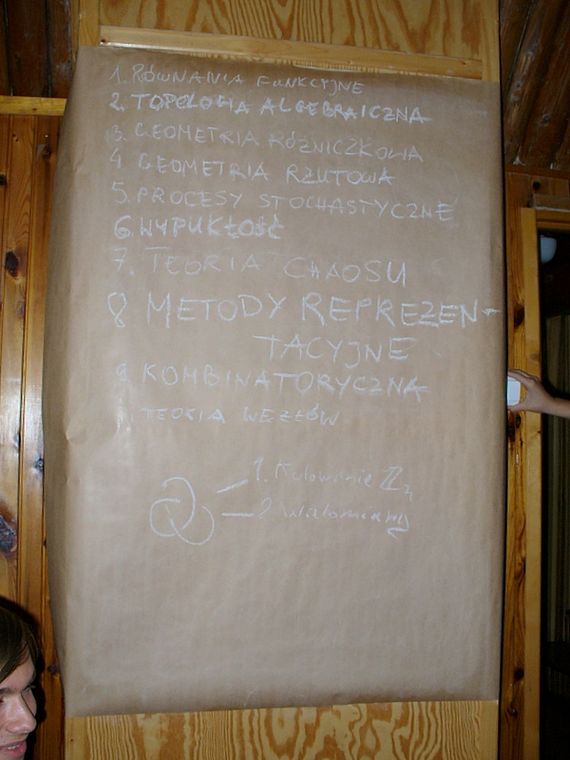 1. RÓWNANIA FUNKCYJNE
2. TOPOLOGIA ALGEBRAICZNA
3. GEOMETRIA RÓŻNICZKOWA
4 GEOMETRIA RZUTOWA
5. PROCESY STOCHASTYCZNE
6. WYPUKŁOŚĆ
7. TEORIA CHAOSU
8 METODY REPREZEN-
TACYJNE
9 KOMBINATORYCZNA
TEORIA WĘZŁÓW
1. Kolorowanie
2 Wielomiany